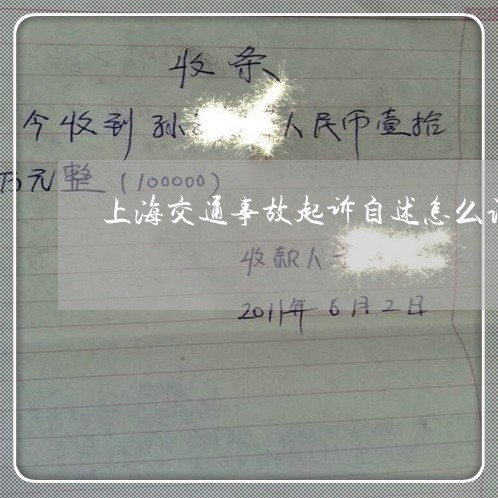 收条
今收到孙 人民币壹拾
万元整(100000)
上海交通事故起诉自述怎么
收款人
2011年6月2日